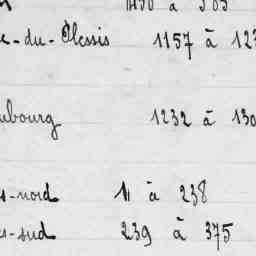 à 505
e-du-Plessis 1157 à 123
ubourg 1232 à 130
s-nord 11 à 238
s-sud 239 à 375